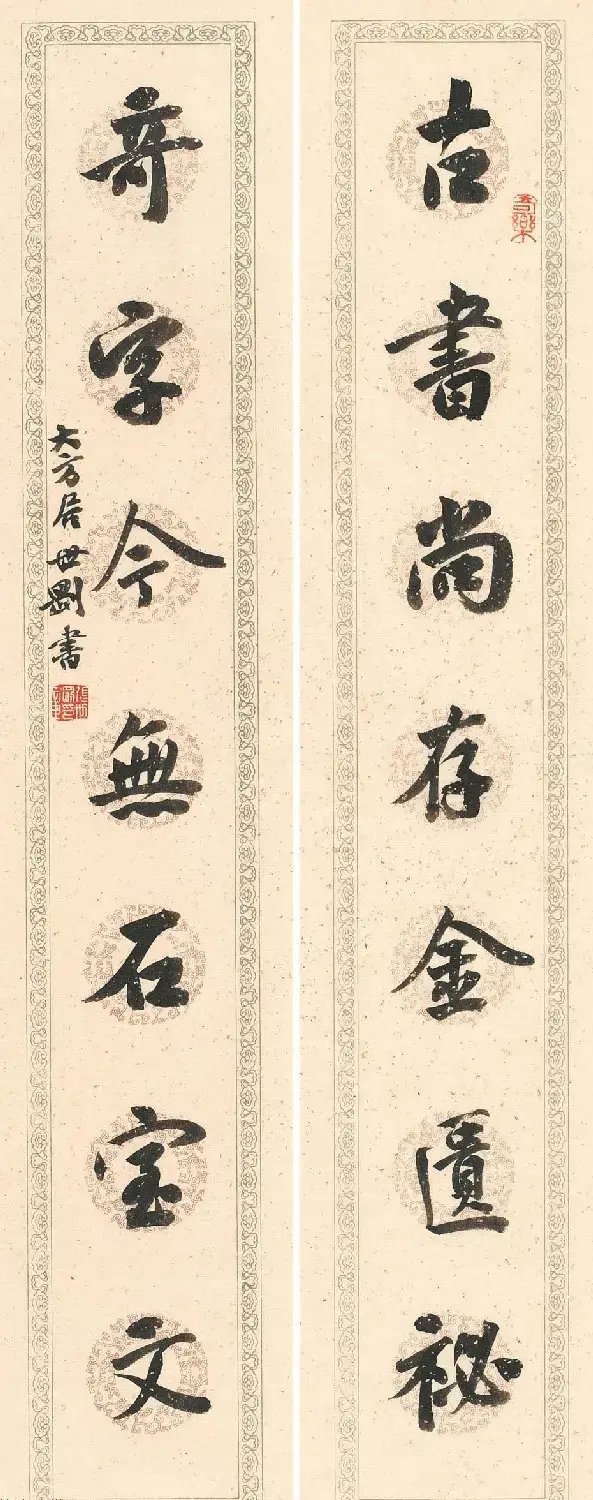 古書尚存金匱祕
吾樂
奇字今無石室文
大方居世剛書